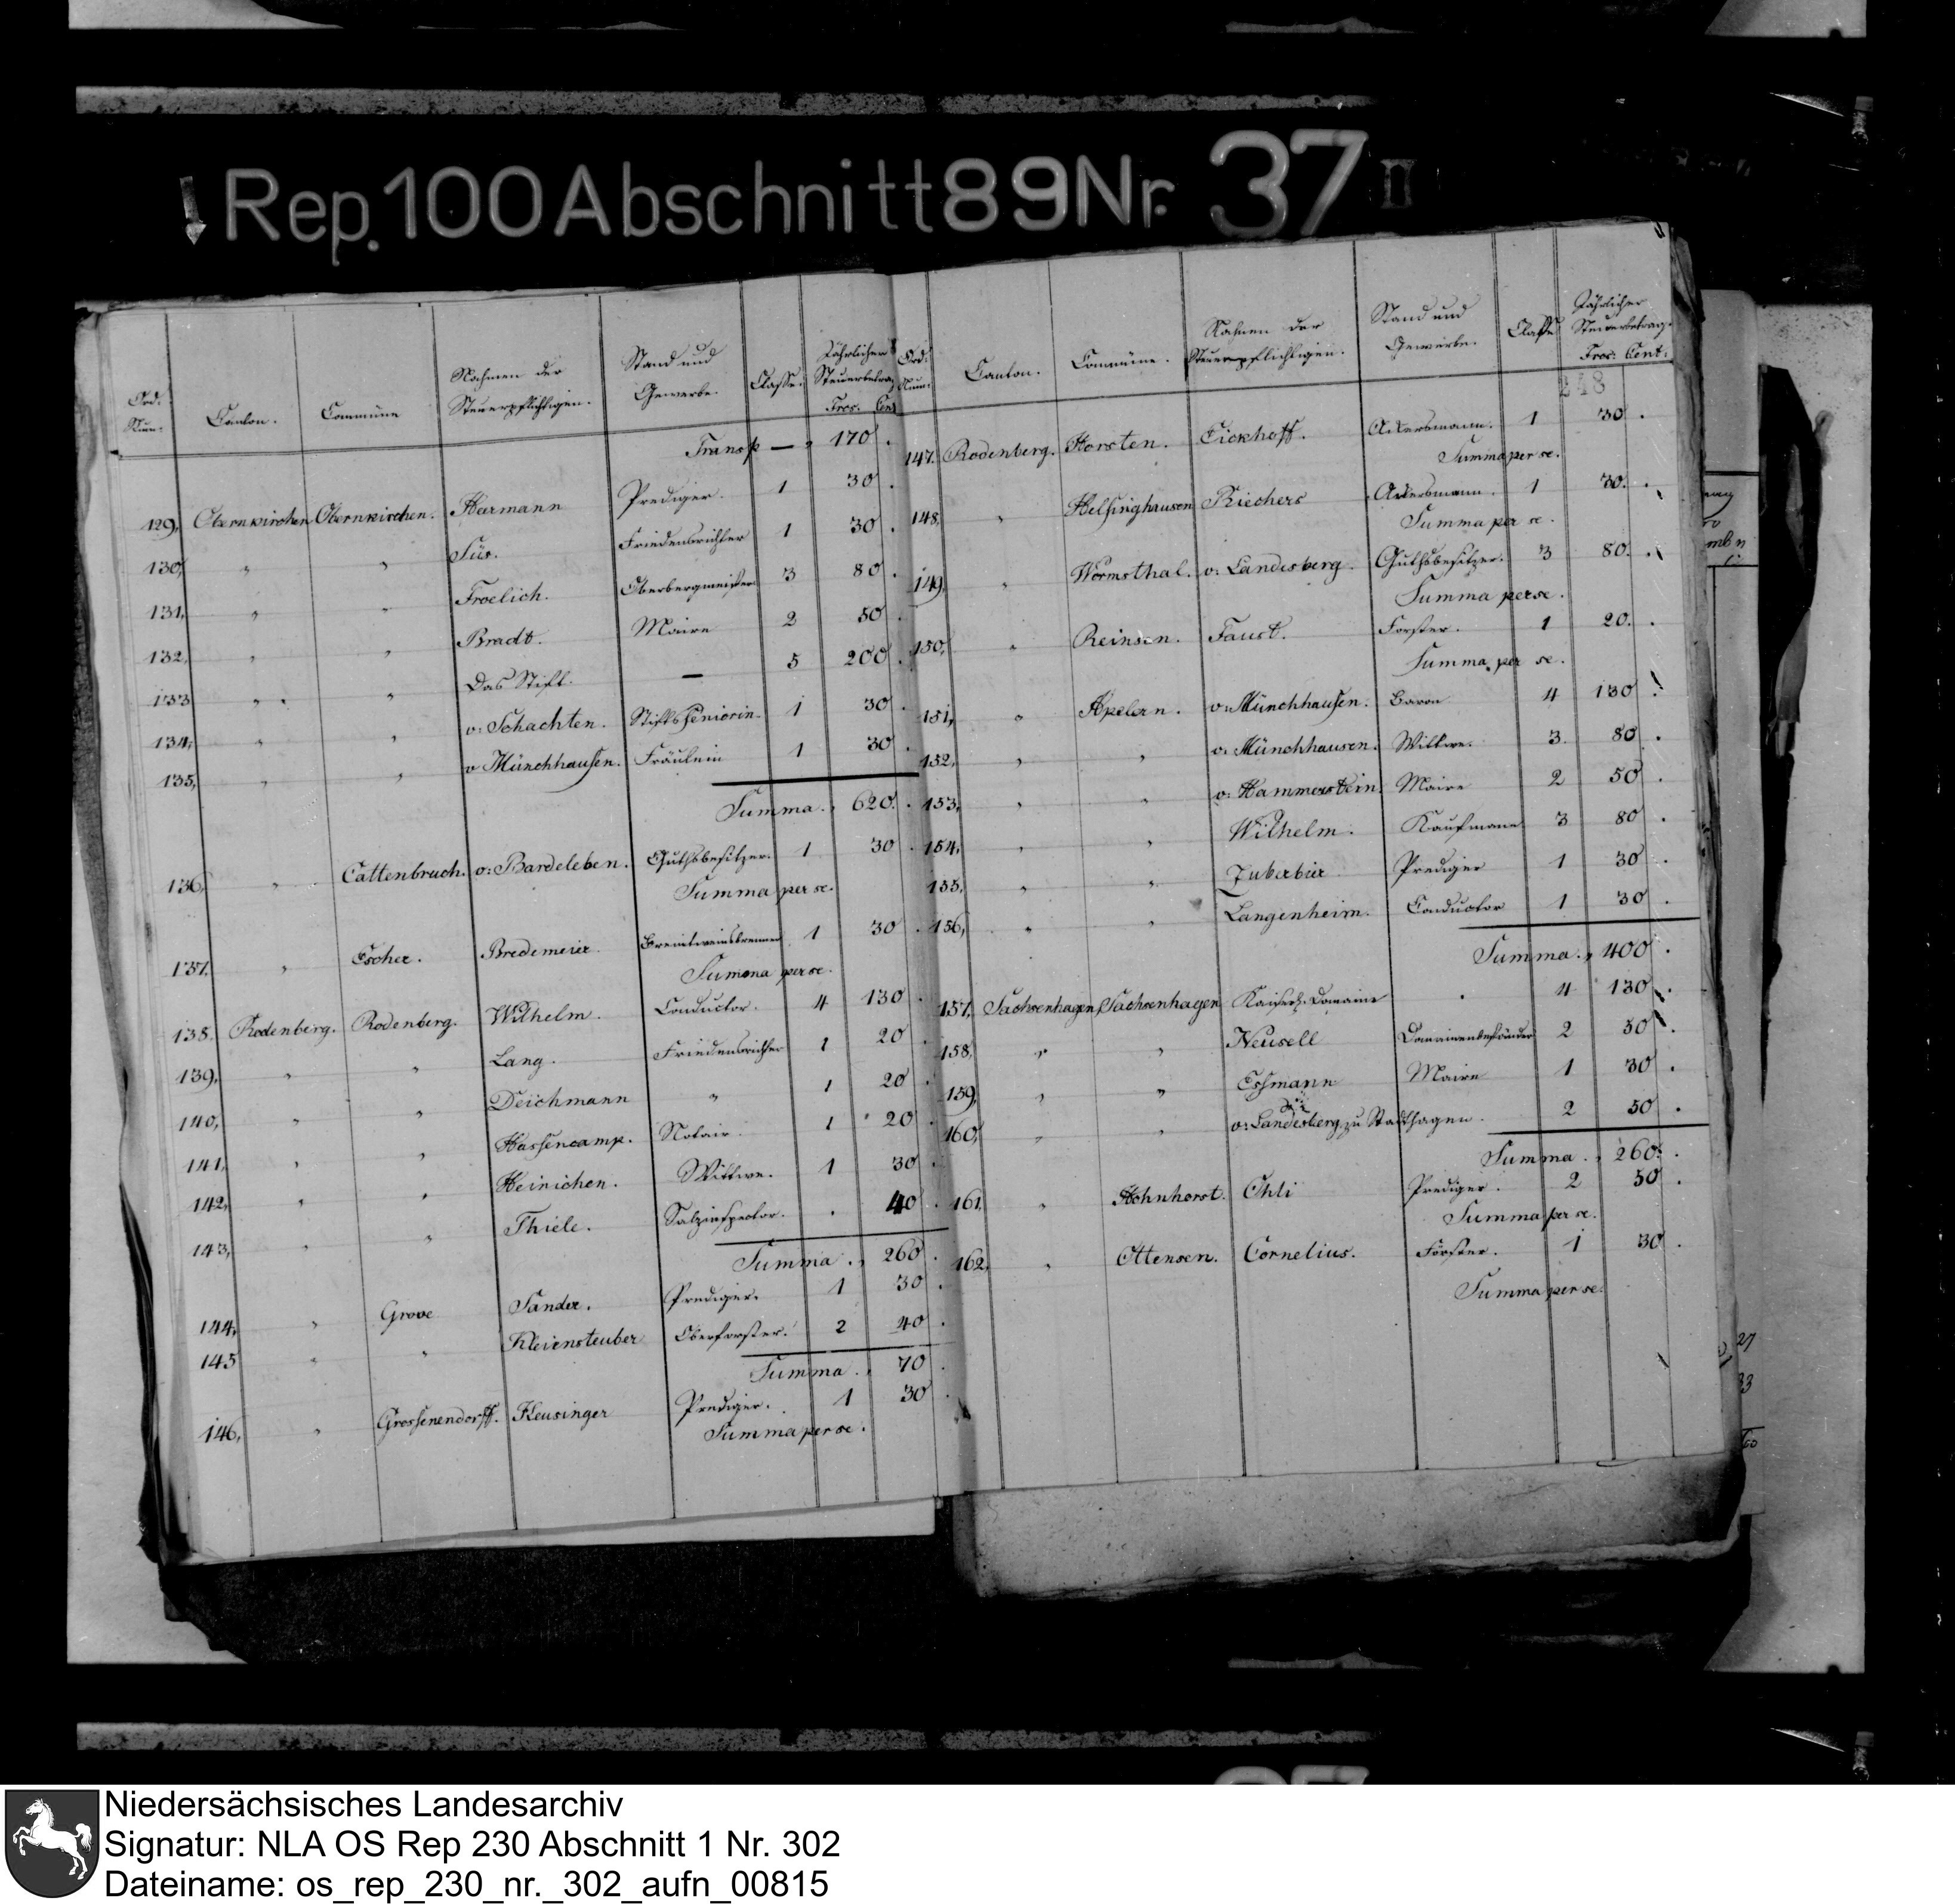 Rep. 100 Abschnitt 89 Nr. 37 II
Ord. Num. Canton. Commüne Nahmen der Steuerpflichtigen. Stand und Gewerbe. Classe. Jährlicher Steuerbetrag Frcs. Cent
Transp — 170.
129, Obernkirchen Obernkirchen. Harmann Prediger. 1 30.
130, " " Süs. Friedensrichter 1 30.
131, " " Froelich. Oberbergmeister 3 80.
132, " " Bradt. Maire 2 50.
133 " " Das Stift. — 5 200.
134, " " v: Schachten. Stifts Seniorin. 1 30.
135, " " v Münchhausen. Fräulein 1 30.
Summa. 620.
136, " Cattenbruch. v: Bardeleben. Guthsbesitzer. 1 30.
Summa per se.
137. " Escher. Bredemeier. Branntweinbrenner 1 30.
Summa per se.
138. Rodenberg. Rodenberg. Wilhelm. Conductor. 4 130.
139, " " Lang. Friedensrichter 1 20.
140, " " Deichmann " 1 20.
141, " " Hassencamp. Notair. 1 20.
142, " " Heinichen. Wittwe. 1 30.
143, " " Thiele. Salzinspector. . 40.
Summa. 260.
144, " Grove Sander. Prediger. 1 30.
145 " " Kleinsteuber Oberförster. 2 40.
Summa. 70.
146, " Grossenendorff. Heusinger Prediger. 1 30.
Summa per se.
Ord. Num. Canton. Commüne. Nahmen der Steuerpflichtigen. Stand und Gewerbe. Classe Jährlicher Steuerbetrag. Frcs. Cent.
248
147. Rodenberg. Horsten. Eickhoff. Ackersmann. 1 30.
Summa per se.
148, " Helsinghausen Riechers Ackersmann. 1 30.
Summa per se.
149, " Wormsthal. v: Landesberg. Guthsbesitzer. 3 80.
Summa per se.
150, " Reinsen. Faust. Förster. 1 20.
Summa per se.
151, " Apelern. v: Münchhausen. Baron 4 130.
152, " " v: Münchhausen. Wittwe. 3. 80.
153, " " v: Hammerstein. Maire 2 50.
154, " " Wilhelm. Kaufmann 3 80.
155, " " Zuberbier Prediger 1 30.
156, " " Langenheim. Conductor 1 30.
Summa. 400.
157, Sachsenhagen, Sachsenhagen Kaiserl. Domaine . 4 130.
158, " " Neusell 2 50.
159, " " Essmann Maire 1 30.
160, " " v: Landesberg zu Stadthagen. 2 50.
Summa. 260.
161, " Hohnhorst. Ohli Prediger. 2 50.
Summa per se.
162, " Ottensen. Cornelius. Förster. 1 30.
Summa per se.
Niedersächsisches Landesarchiv
Signatur: NLA OS Rep 230 Abschnitt 1 Nr. 302
Dateiname: os_rep_230_nr._302_aufn_00815